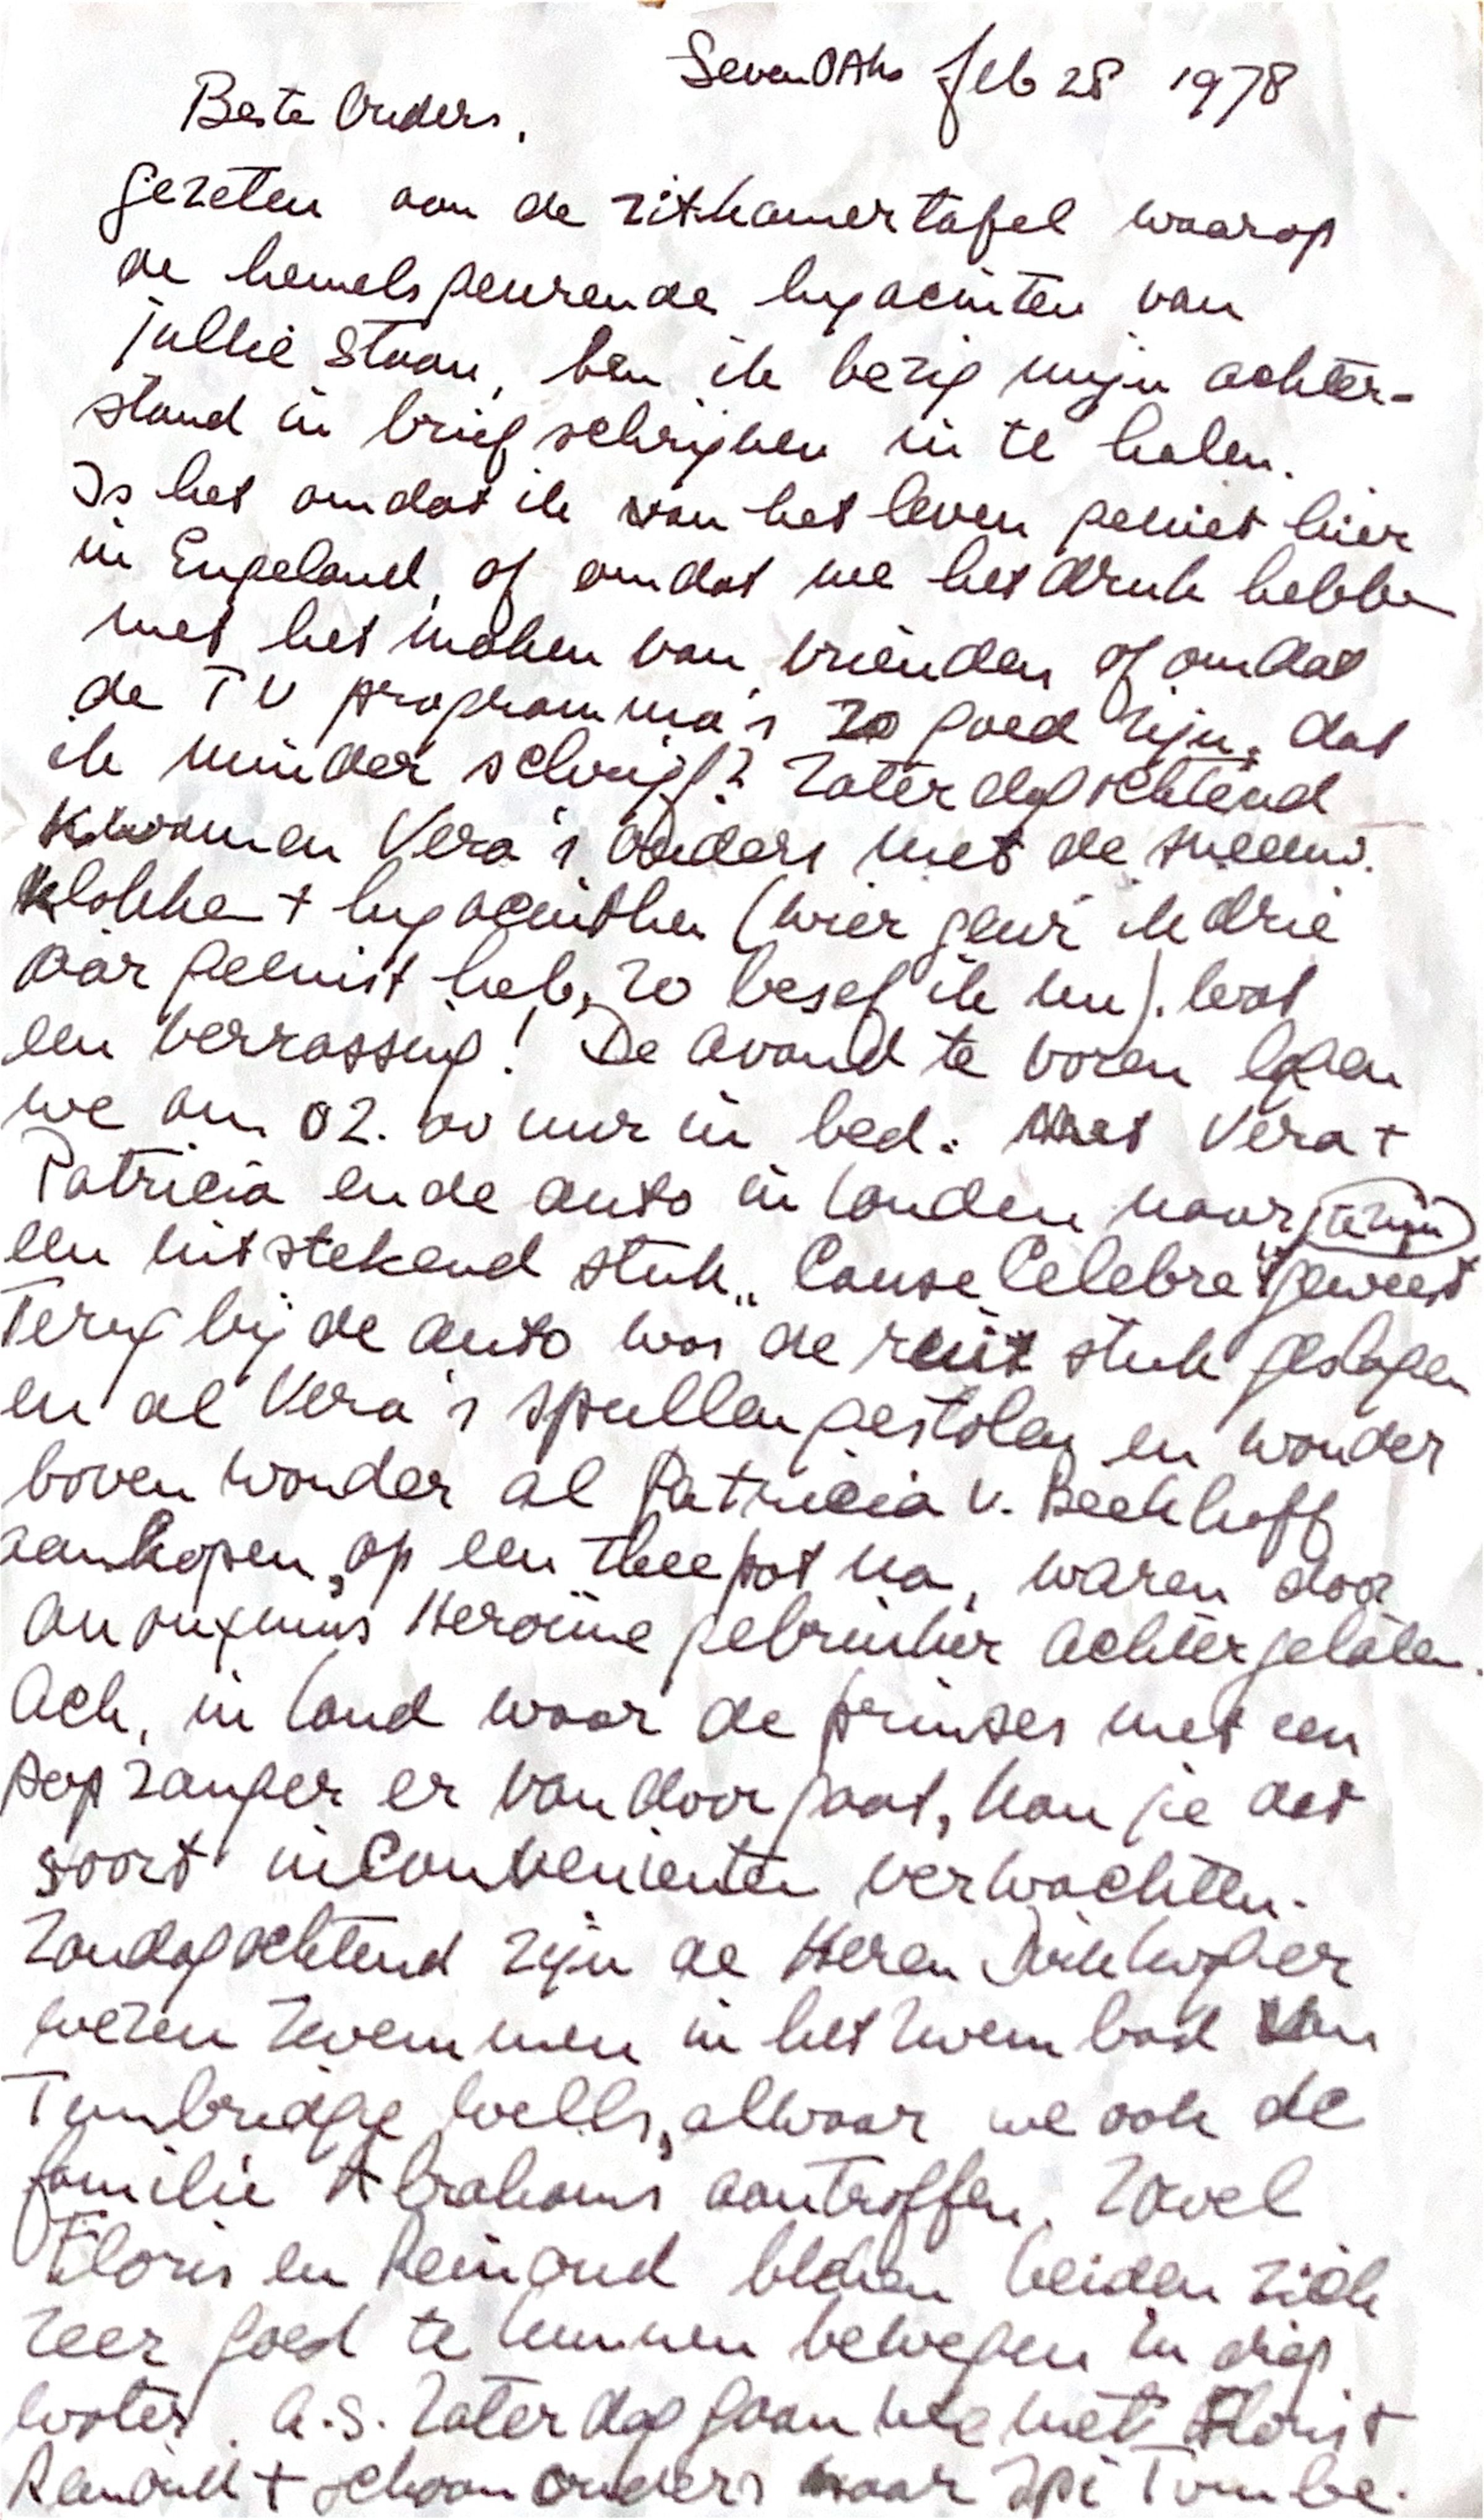 SevenOAks feb 28 1978
Beste Ouders,
gezeten aan de zitkamertafel waarop
de hemelsgeurende hyacinten van
jullie staan, ben ik bezig mijn achter-
stand in brief schrijven in te halen.
Is het omdat ik van het leven geniet hier
in Engeland, of omdat we het druk hebben
met het maken van vrienden of omdat
de TV programma's zo goed zijn, dat
ik minder schrijf? Zaterdagochtend
kwamen Vera's ouders met de sneeuw.
klokken + hyacinthen (wier geur ik drie
jaar gemist heb, zo besef ik nu). Wat
een verrassing! De avond te voren lagen
we om 02.00 uur in bed. Met Vera +
Patricia en de auto in Londen naar te zijn
een uitstekend stuk „Cause Celebre" geweest
Terug bij de auto was de ruit stuk geslagen
en al Vera's spullen gestolen en wonder
boven wonder al Patricia v. Beekhoff
aankopen, op een theepot na, waren door
anonymus Heroïne gebruiker achtergelaten.
Ach, in land waar de prinses met een
popzanger er vandoor gaat, kan je dat
soort inconvenienten verwachten.
Zondagochtend zijn de Heren
wezen zwemmen in het zwembad van
Tunbridge Wells, alwaar we ook de
familie Abrahams aantroffen. Zowel
Floris en Reinoud bleken beiden zich
zeer goed te kunnen bewegen in diep
water. A.S. Zaterdag gaan we met Floris +
Reinoud + schoonouders naar Ipi Tombe.